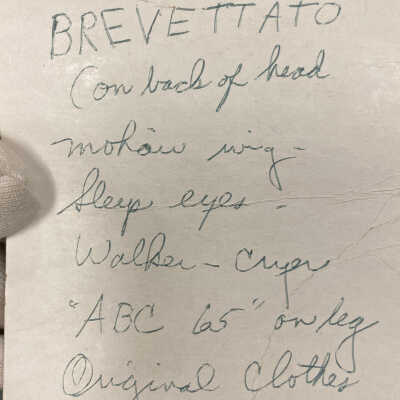 BREVETTATO
(on back of head
mohair wig -
Sleep eyes -
Walker - cryer
"ABC 65" on leg
Original Clothes